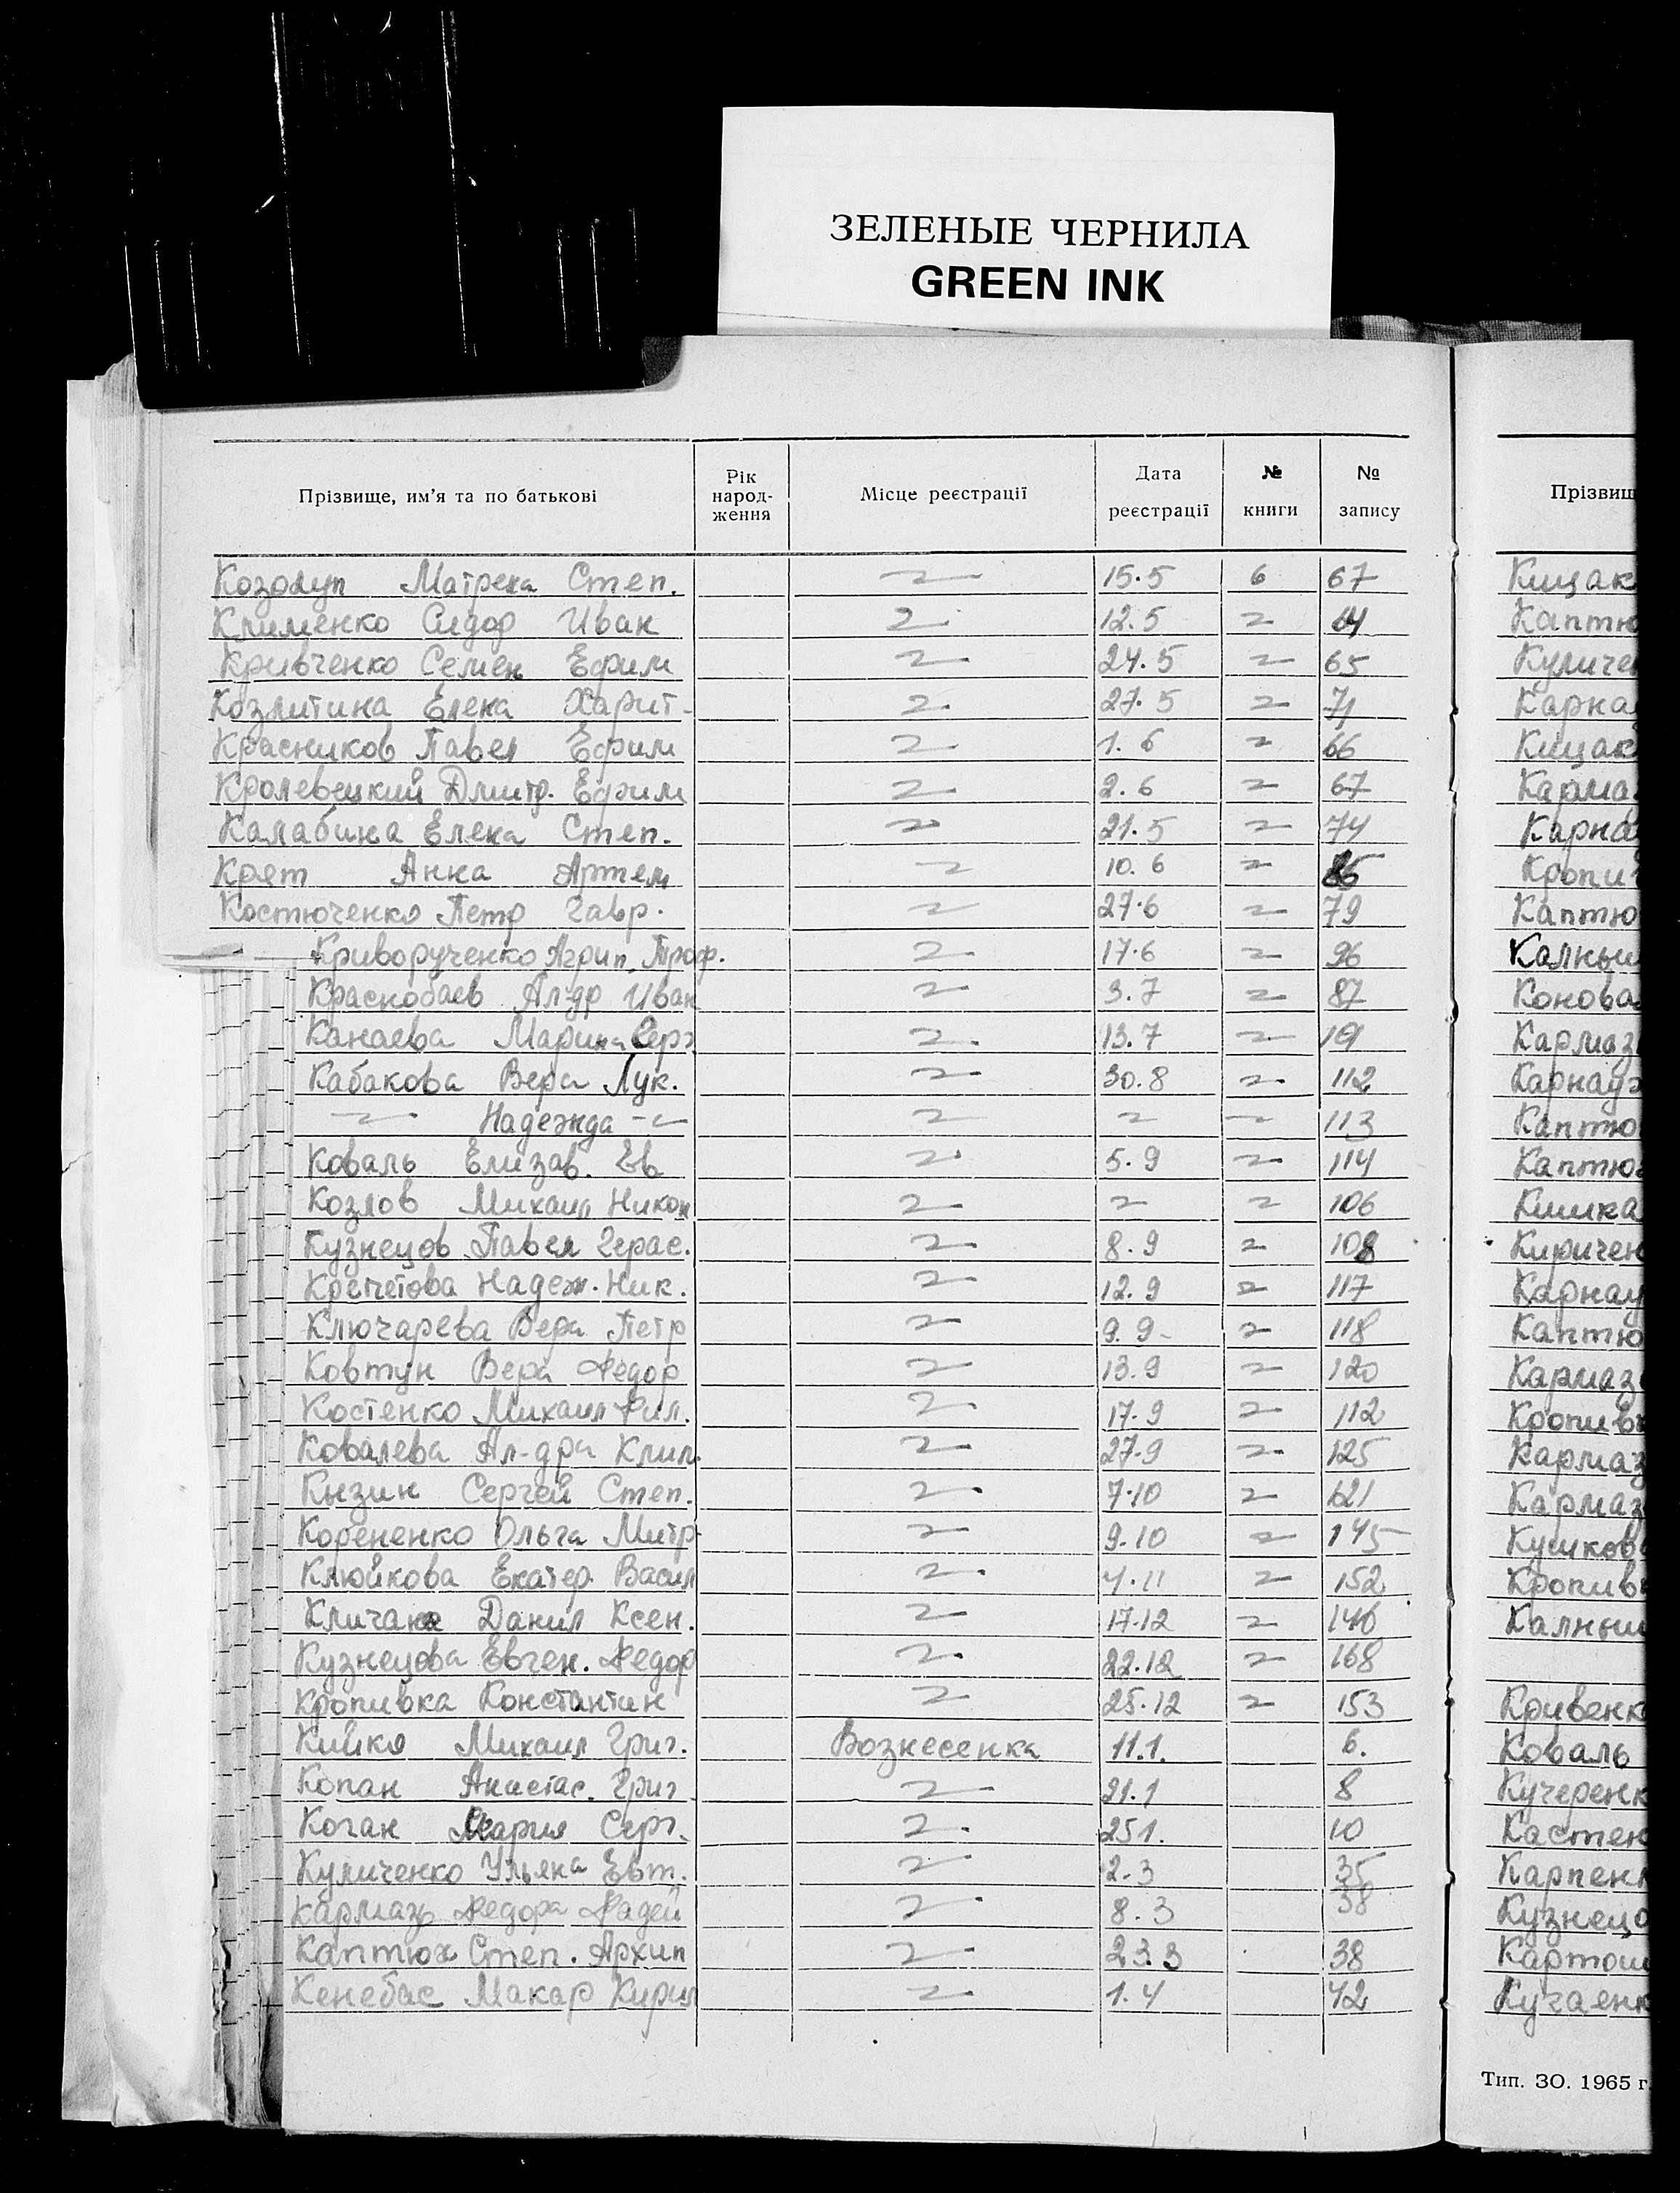 ЗЕЛЕНЫЕ ЧЕРНИЛА
GREEN INK
Прізвище, им'я та по батькові Рік народ-ження Місце реєстрації Дата реєстрації № книги № запису Прізвищ
Козолуп Матрена Степ. 15.5 6 67 Кищак
Клименко Сидор Иван 12.5 Каптю
Кривченко Семен Ефим 24.5 65 Куличен
Козлитина Елена Харит- 27.5 71 Карна
Красников Павел Ефим 1.6 66 Кищак
Кролевецкий Дмитр. Ефим 2.6 67 Карма
Калабина Елена Степ. 21.5 74 Карна
Анна Артем 10.6 Кропи
Костюченко Петр Гавр. 27.6 79 Каптю
Криворученко Агрип. Троф. 17.6 96 Калныш
Краснобаев Ал-др Иван 3.7 87 Конова
Канаева Марина Серг 13.7 Кармаз
Кабакова Вера Лук. 30.8 112 Карнау
Надежда 113 Каптю
Коваль Елизав. Ев 5.9 114 Каптю
Козлов Михаил Никон 106 Кишка
Кузнецов Павел Герас. 8.9 108 Киричен
Кречетова Надеж. Ник. 12.9 117 Карнау
Ключарева Вера Петр 9.9- 118 Каптю
Ковтун Вера Федор 13.9 120 Кармаз
Костенко Михаил Фил. 17.9 112 Кропив
Ковалева Ал-дра Клим. 27.9 125 Кармаз
Кызин Сергей Степ. 7.10 121 Кармаз
Корененко Ольга Митр 9.10 145 Кушков
Клюйкова Екатер. Васил 152 Кропив
Данил Ксен. 17.12 146 Калныш
Кузнецова Евген. Федор 22.12 168
Кропивка Константин 25.12 153 Кривенк
Кийко Михаил Григ. Вознесенка 11.1. 6. Коваль
Копан Анастас. Григ 21.1 8 Кучеренк
Коган Мария Серг. 251. 10 Кастен
Куличенко Ульяна Евт. 2.3 35 Карпен
Кармаз Федора Фадей 8.3 38 Кузнецо
Каптюх Степ. Архип 23.3 38 Картош
Кенебас Макар Кирил 1.4 42 Кучаенк
Тип. ЗО. 1965 г.